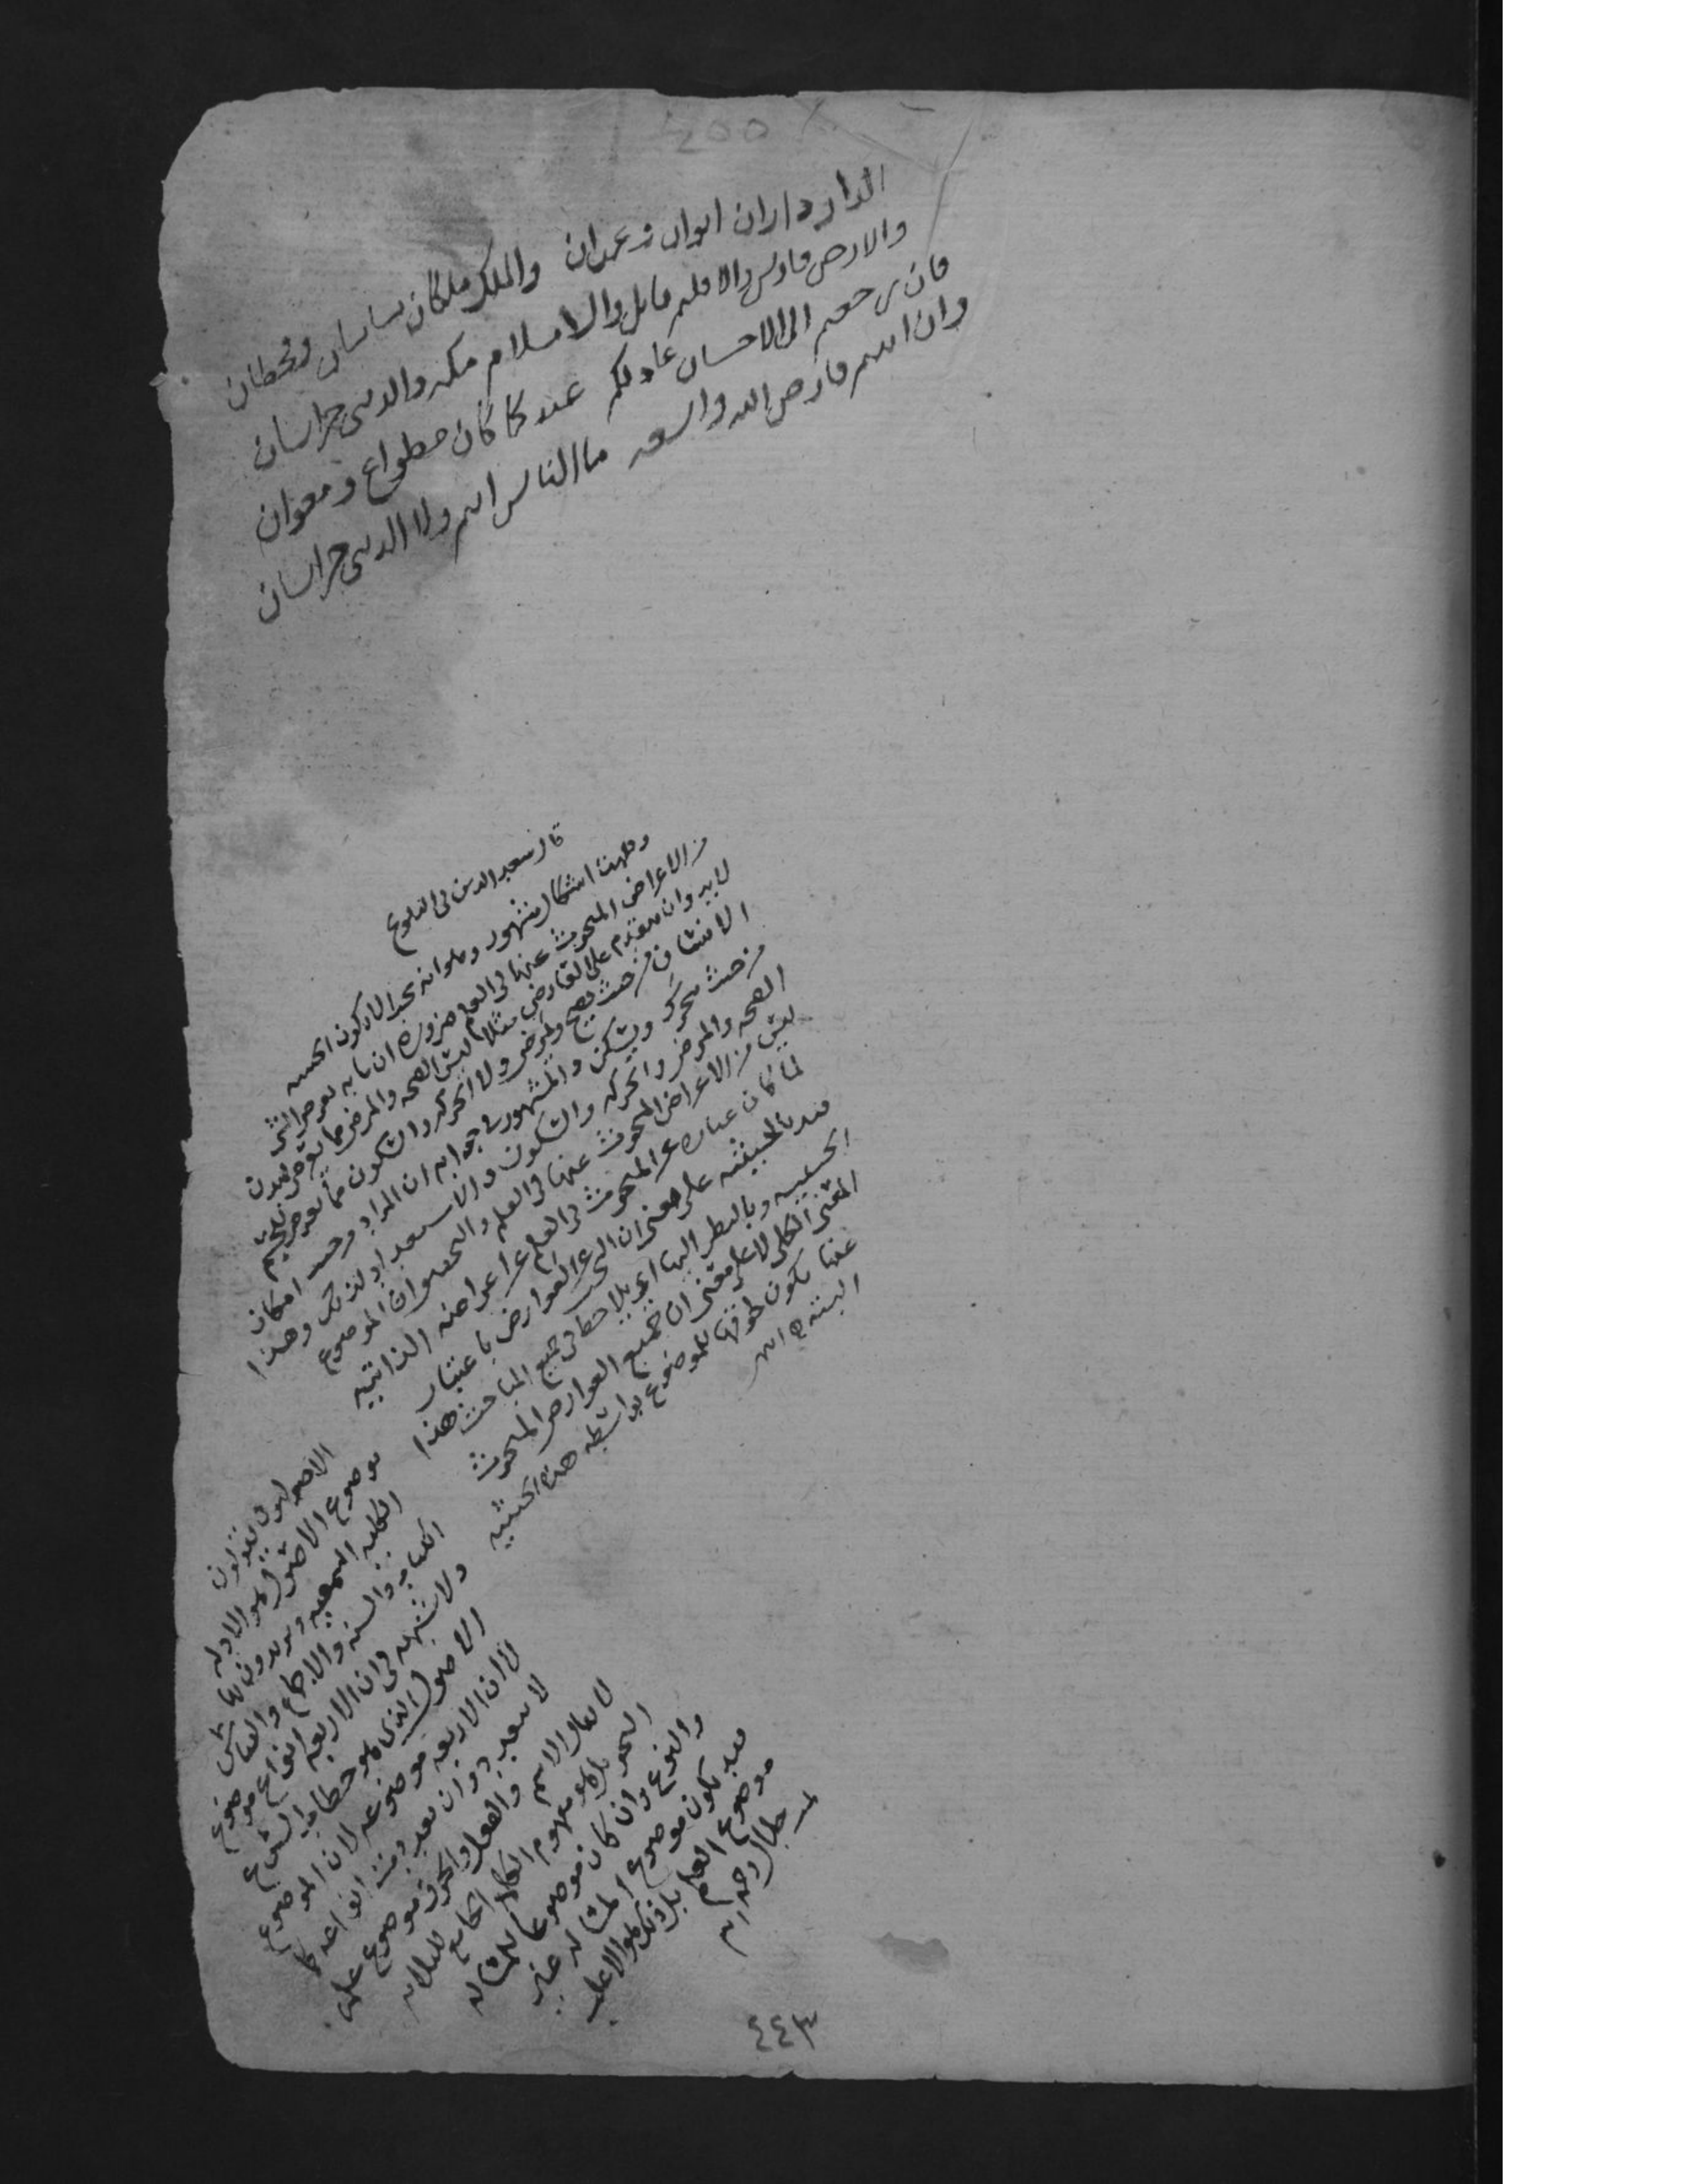 الدار داران ايوان وغمدان والملك ملكان ساسان وقحطان
والارض فارس والاقليم بابل والاسلام مكه والدنى خراسان
فان رجعتم الى الاحسان عاد لكم عبد كما كان مطواع ومعوان
وان ابيتم فارض الله واسعه ما الناس انتم ولا الدنى خراسان
قال سعد الدين فى التلويح
وههنا اشكال مشهور وهو انه يجب ان لا تكون الحيثيه
من الاعراض المبحوث عنها فى العلم ضرورة ان ما به يعرض الشى
لابد وان يتقدم على العارض مثلا ليس الصحه والمرض مما يعرض لبدن
الانسان من حيث يصح ويمرض ولا الحركه والسكون مما يعرض للجسم
من حيث يتحرك ويسكن والمشهور فى جوابه ان المراد من حيث امكان
الصحه والمرض والحركه والسكون والاستعداد لذلك وهذا
ليس من الاعراض المبحوث عنها فى العلم والتحقيق ان الموضوع
لما كان عباره عن المبحوث فى العلم عن اعراضه الذاتيه
قيد بالحيثيه على معنى ان البحث عن العوارض باعتبار
الحيثيه وبالنظر اليها اى يلاحظ فى جميع المباحث هذا
المعنى الكلى لا على معنى ان جميع العوارض المبحوث
عنها يكون لحوقها للموضوع بواسطه هذه الحيثيه
البته
الاصوليون يقولون
موضوع الاصول هو الادله
الكليه السمعيه ويريدون بها
الكتاب والسنه والاجماع والقياس
ولا شبهه فى ان الاربعه انواع موضوع
الاصول الذى هو خطاب الشرع
لا ان الاربعه موضوعه لان الموضوع
لا يتعدد وان تعددت انواعه كما
لا يقال الاسم والفعل والحرف موضوع علم
النحو بل هو مفهوم الكلام الجامع للثلاثه
والنوع وان كان موضوعا للمسئاله
فقد يكون موضوع المسئاله غير
موضوع العلم بل ذلك هو الاغلب
٤٤٣